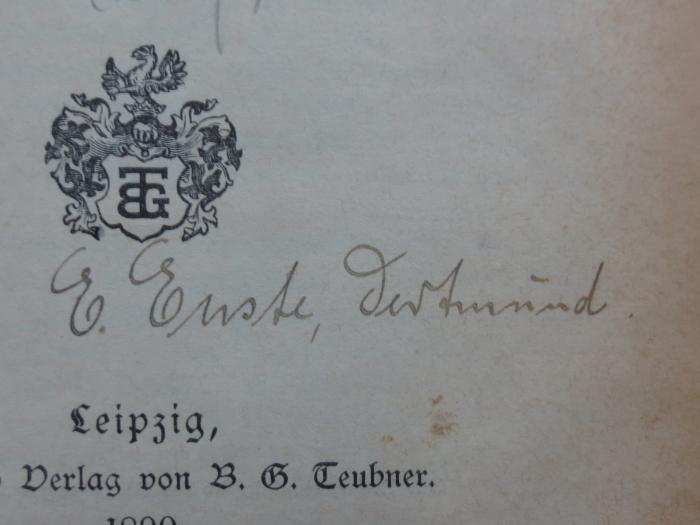 BTG
E. Enste, Dortmund.
Leipzig,
Verlag von B. G. Teubner.